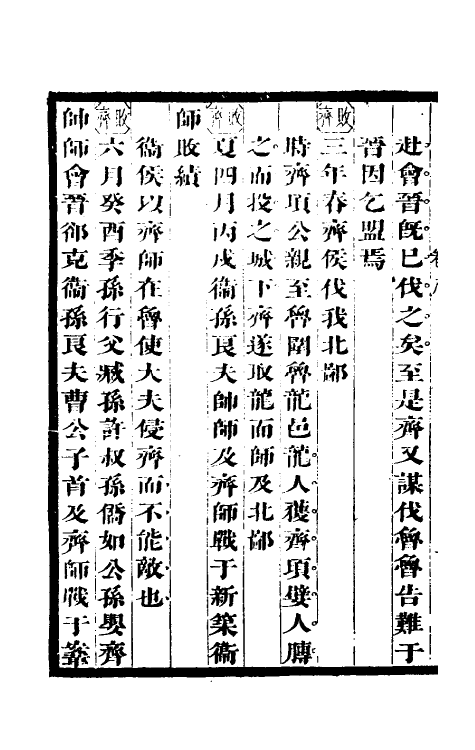 赴會晉旣已伐之矣至是齊又謀伐魯魯告難于
晉因乞盟焉
敗齊
三年春齊侯伐我北鄙
時齊頃公親至魯圍魯龍邑龍人獲齊頃嬖人膊
之而投之城下齊遂取龍而師及北鄙
敗齊
夏四月丙戌衞孫良夫帥師及齊師戰于新築衞
師敗績
衞侯以齊師在魯使大夫侵齊而不能敵也
敗齊
六月癸酉季孫行父臧孫許叔孫僑如公孫嬰齊
帥師會晉郤克衞孫良夫曹公子首及齊師戰于鞌